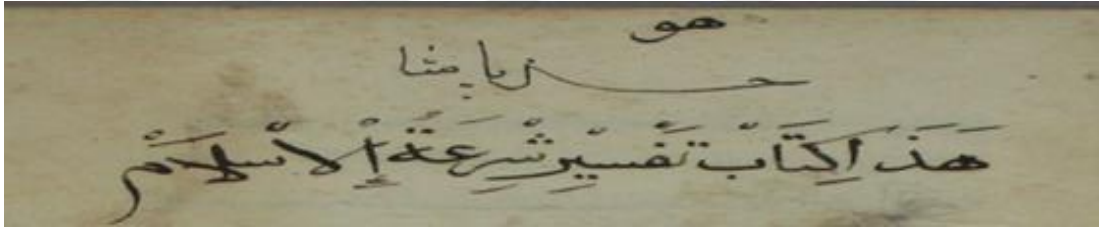 هو
حسن پاشا
هَذَ اكِتَابْ تَفْسِيرْ شِرْعَةُ إِلاسْلَامْ